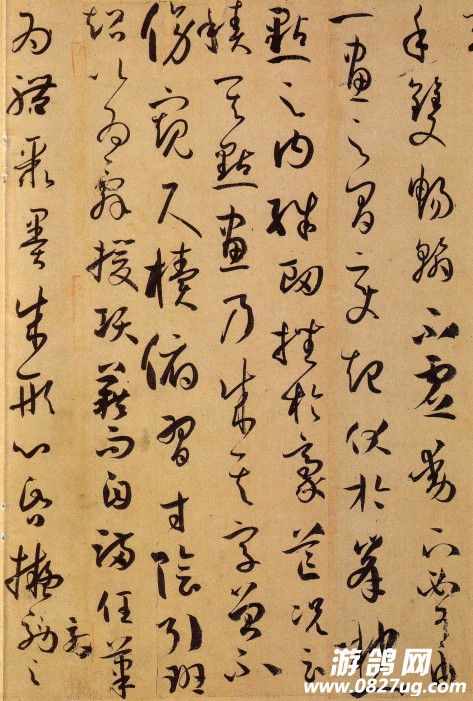 手雙暢翰不虛動下必有由
一畫之間變起伏於峯杪
點之內殊衄挫於豪芒況云
積其點畫乃成其字曾不
傍窺尺櫝俯習寸陰引班
超以為辭援項籍而自滿任筆
為體聚墨成形心昏擬效之
游鸽网
www.0827ug.com